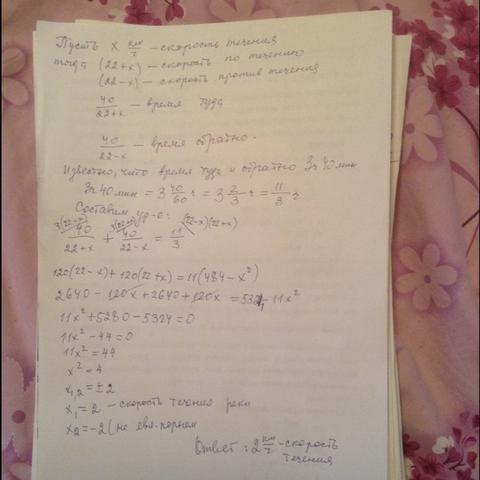 Пусть x км/ч — скорость течения
тогда (22+x) — скорость по течению
(22-x) — скорость против течения
40/22+x — время туда
40/22-x — время обратно.
Известно, что время туда и обратно 3ч 40 мин
3ч 40 мин = 3 40/60 ч = 3 2/3 ч = 11/3 ч
Составим ур-е:
3(22-x) 3(22+x) (22-x)(22+x)
40/22+x + 40/22-x = 11/3
120(22-x)+120(22+x)=11(484-x²)
2640-120x+2640+120x=5324-11x²
11x²+5280-5324=0
11x²-44=0
11x²=44
x²=4
x1,2=±2
x1=2 — скорость течения реки
x2=-2 (не явл. корнем
Ответ: 2 км/ч — скорость
течения